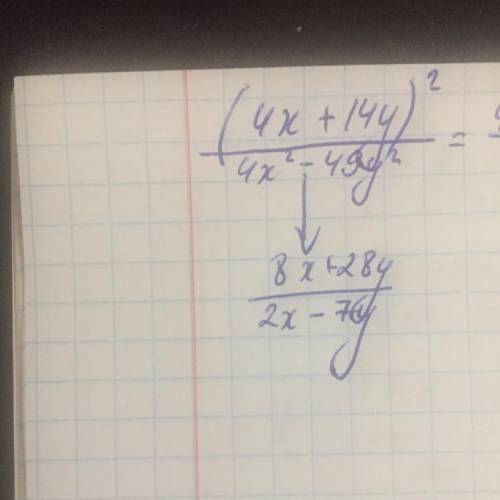 (4x + 14y)²
4x² - 49y² =
↓
8x + 28y
2x - 7y